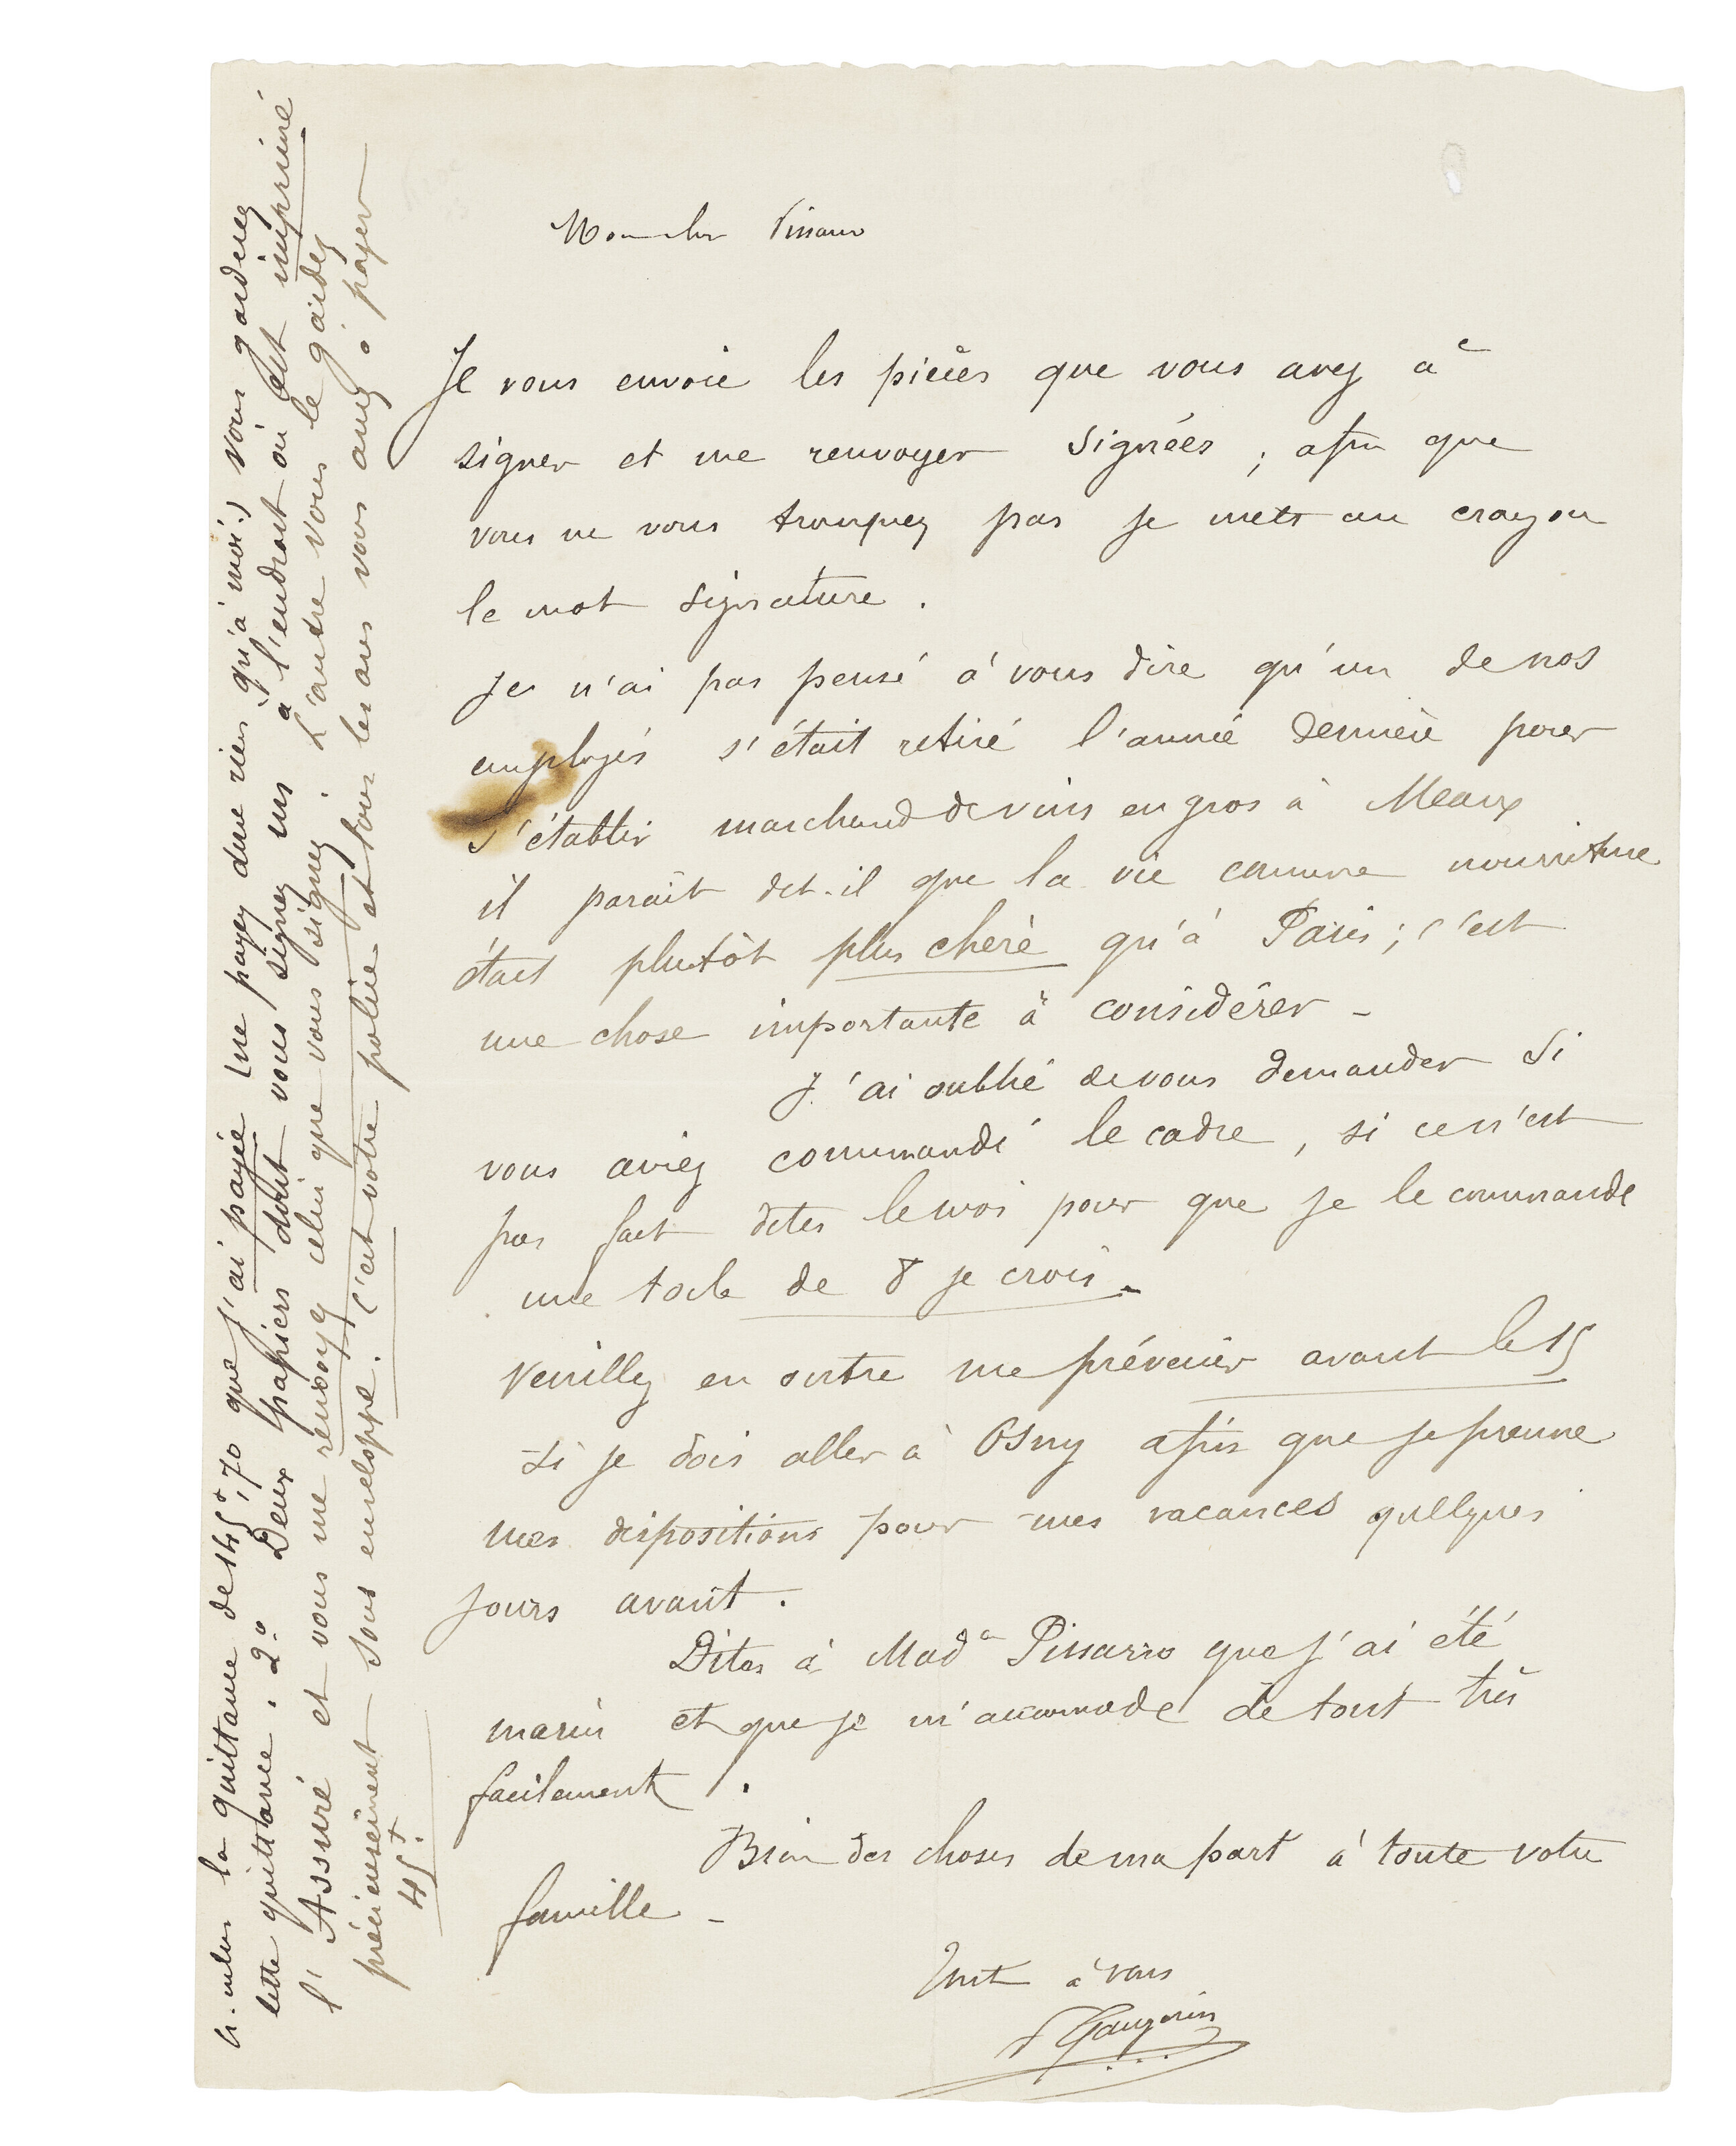 Mon cher Pissarro
Je vous envoie les pièces que vous avez à
signer et me renvoyer signées ; afin que
vous ne vous trompiez pas je mets au crayon
le mot signature .
Je n'ai pas pensé à vous dire qu'un de nos
employés s'était retiré l'année dernière pour
s'établir marchand de vins en gros à Meaux
il paraît dit-il que la vie comme nourriture
était plutôt plus chère qu'à Paris ; c'est
une chose importante à considérer -
J'ai oublié de vous demander si
vous aviez commandé le cadre , si ce n'est
pas fait dites le moi pour que je le commande
une toile de 8 je crois .
Veuillez en outre me prévenir avant le 15
si je dois aller à Osny afin que je prenne
mes dispositions pour mes vacances quelques
jours avant .
Dites à Made Pissarro que j'ai été
marin et que je m'accommode de tout très
facilement .
Bien des choses de ma part à toute votre
famille -
Tout à vous
P Gauguin
la quittance de 145f,70 que j'ai payée (ne payez donc rien qu'à moi.) vous garderez
cette quittance . 2o Deux papiers dont vous signez un à l'endroit où c'est imprimé
l'Assuré et vous me renvoyez celui que vous signez . L'autre vous le gardez
précieusement sous enveloppe . C'est votre police et tous les ans vous aurez à payer
45f.